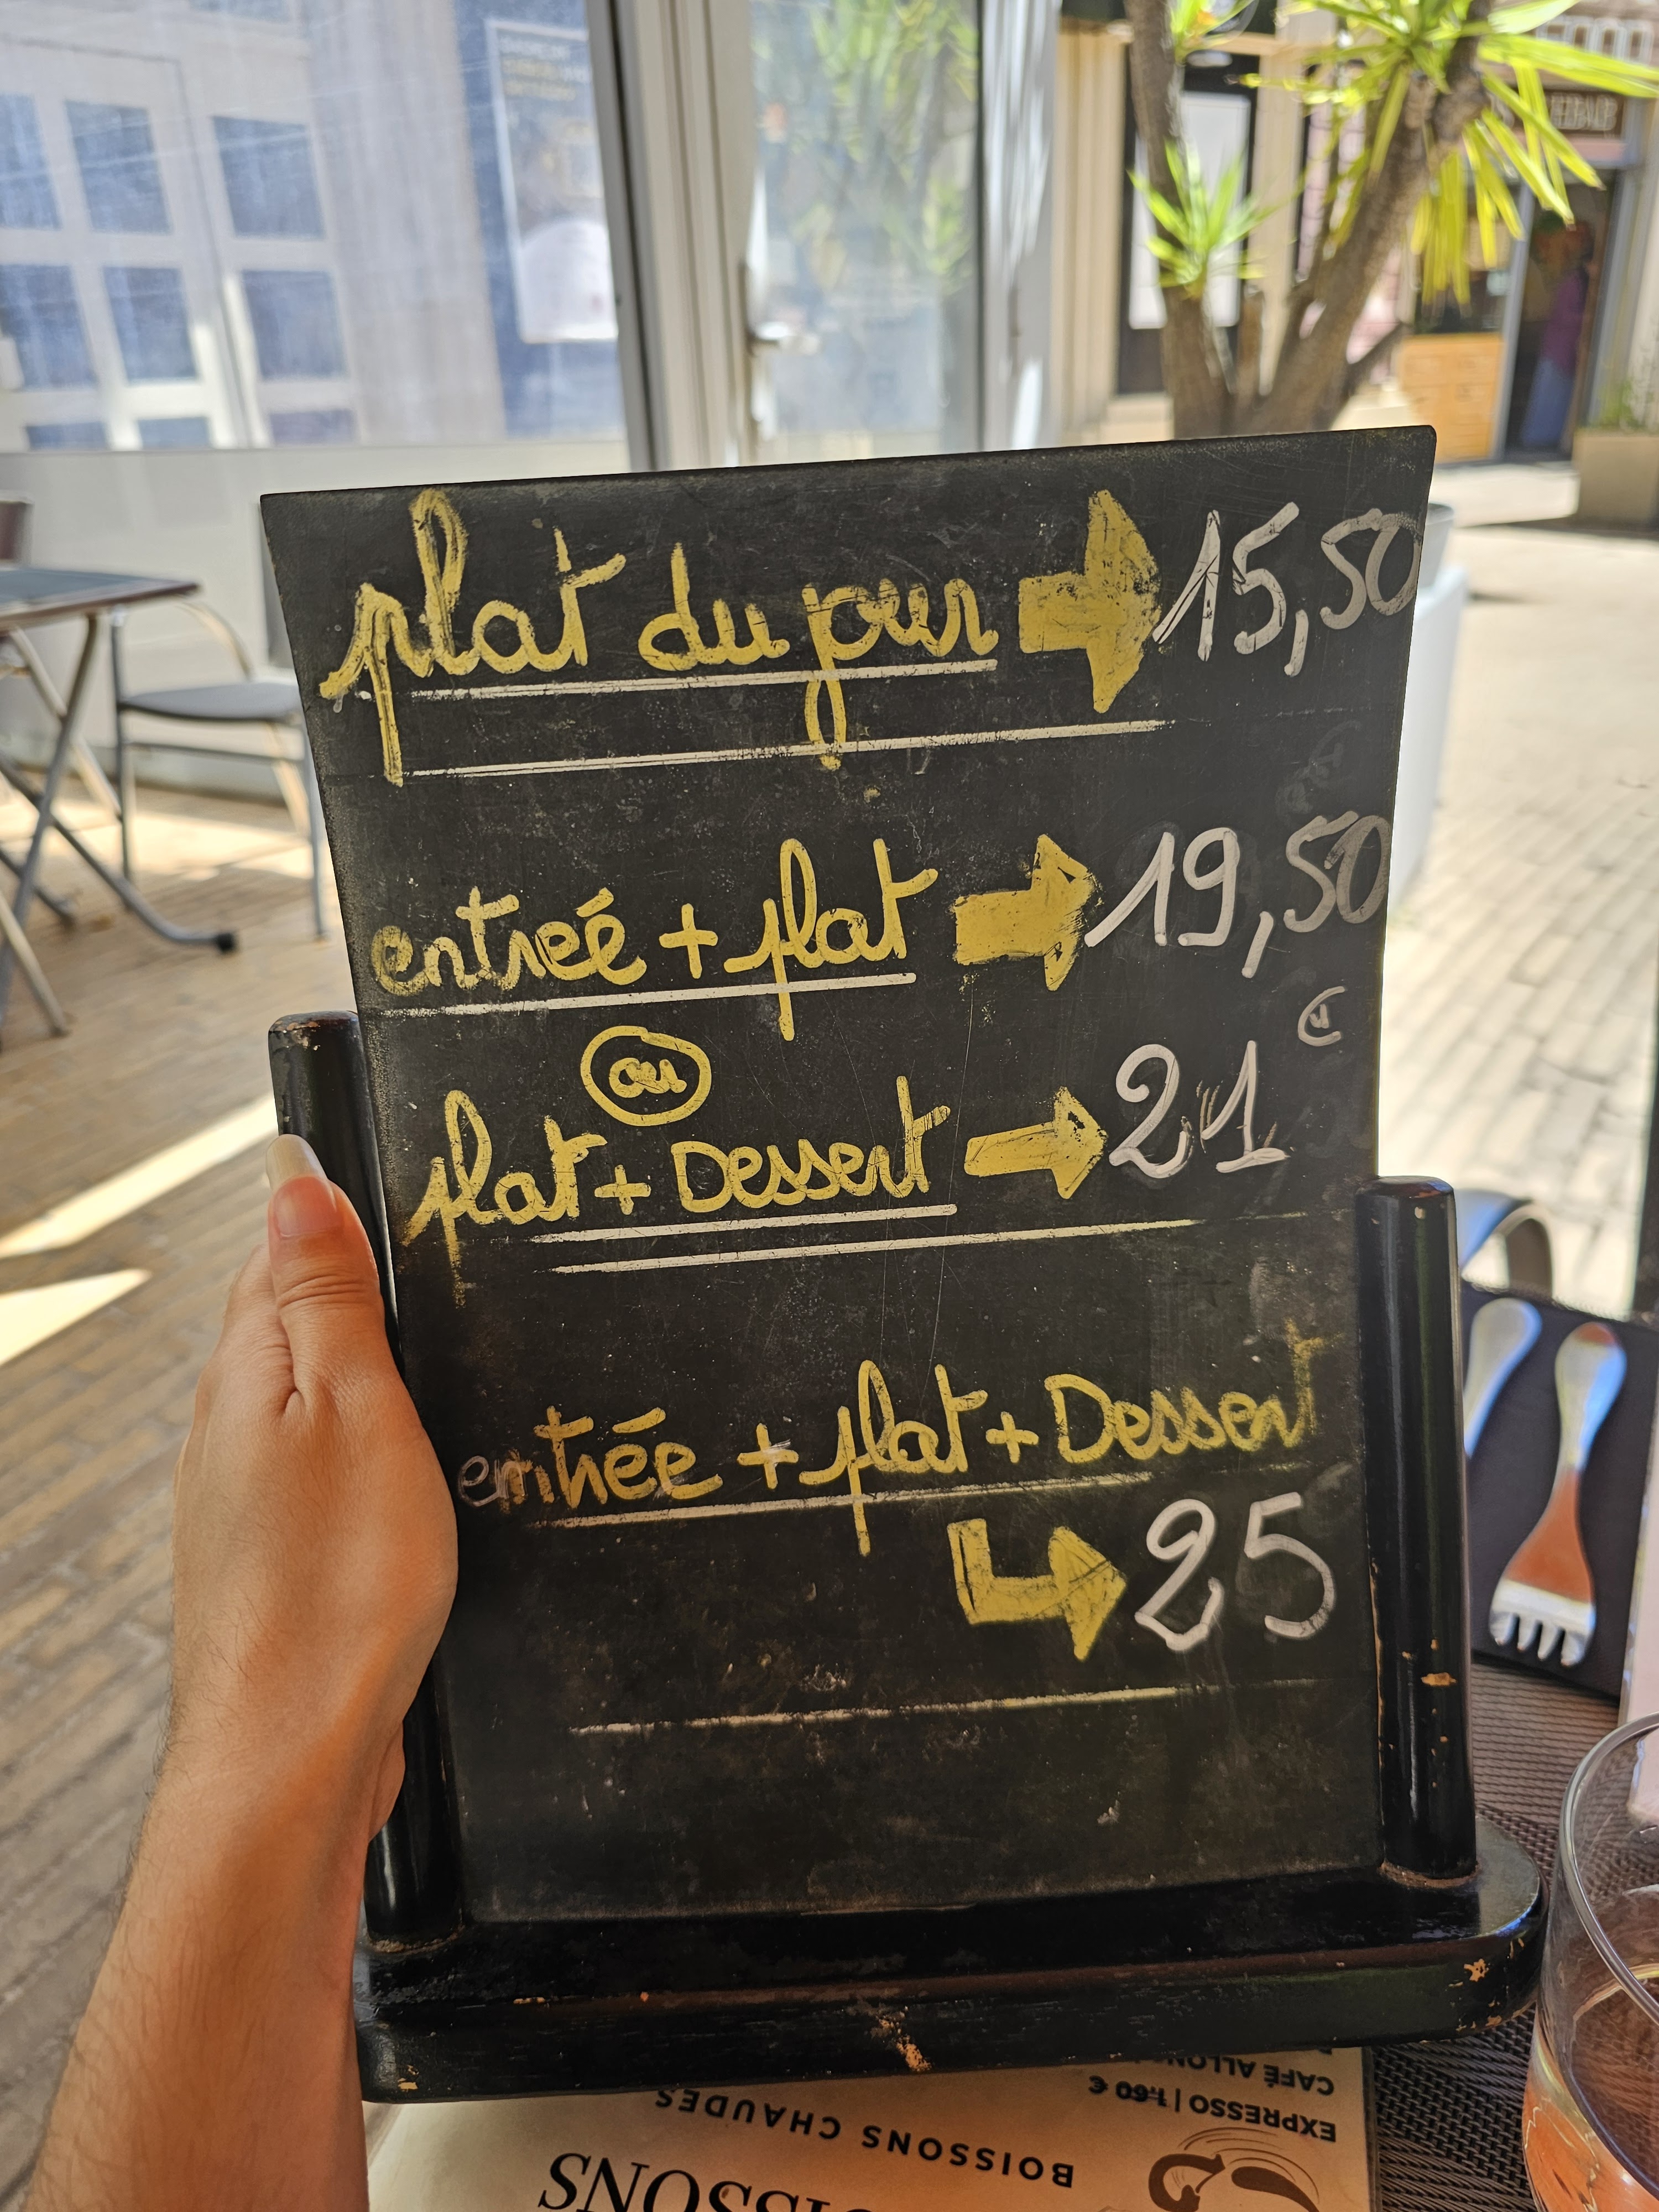 plat du jour 15,50
entreé + plat 19,50
ou
€
plat + Dessert 21
entrée + plat + Dessert
25
EXPRESSO | 1.60 €
CAFÉ
BOISSONS CHAUDES